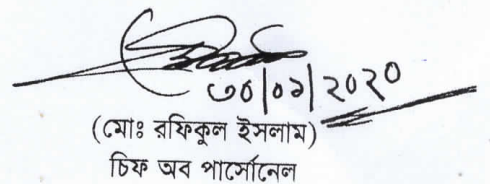 ৩০|০১|২০২০
(মোঃ রফিকুল ইসলাম)
চিফ অব পার্সোনেল